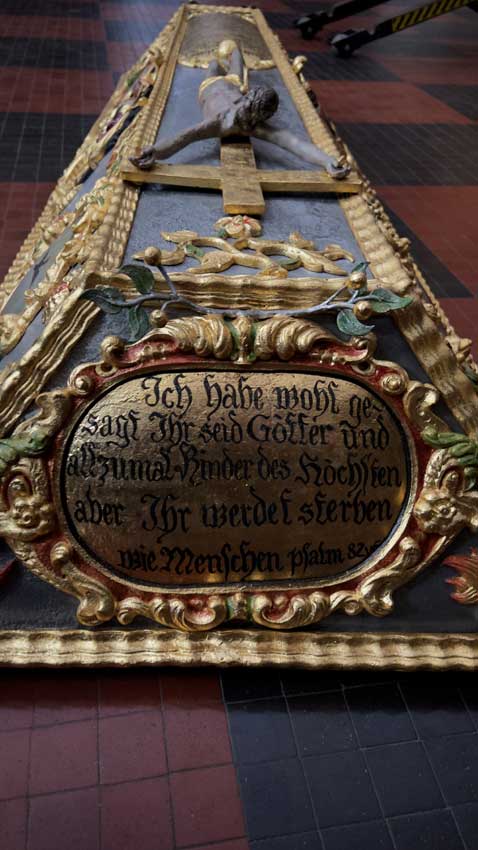 Ich habe wohl ge-
sagt Ihr seid Götter und
allzumal Kinder des Höchsten
aber Ihr werdet sterben
wie Menschen psalm 82 v6